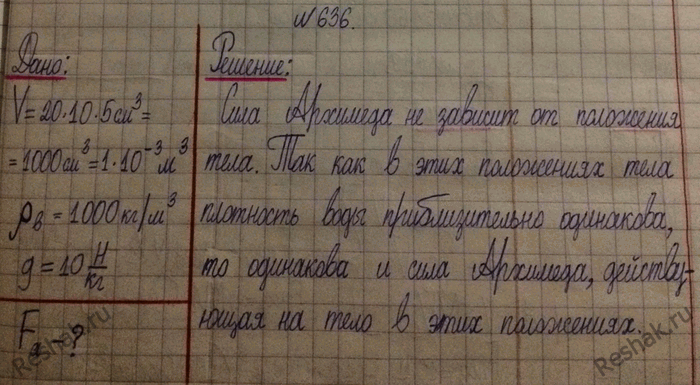 №636.
Дано:
V=20·10·5см³=
=1000см³=1·10⁻³м³
ρв=1000кг/м³
g=10 Н/кг
Fа-?
Решение:
Сила Архимеда не зависит от положения
тела. Так как в этих положениях тела
плотность воды приблизительно одинакова,
то одинакова и сила Архимеда, действу-
ющая на тело в этих положениях.
Reshak.ru
Reshak.ru